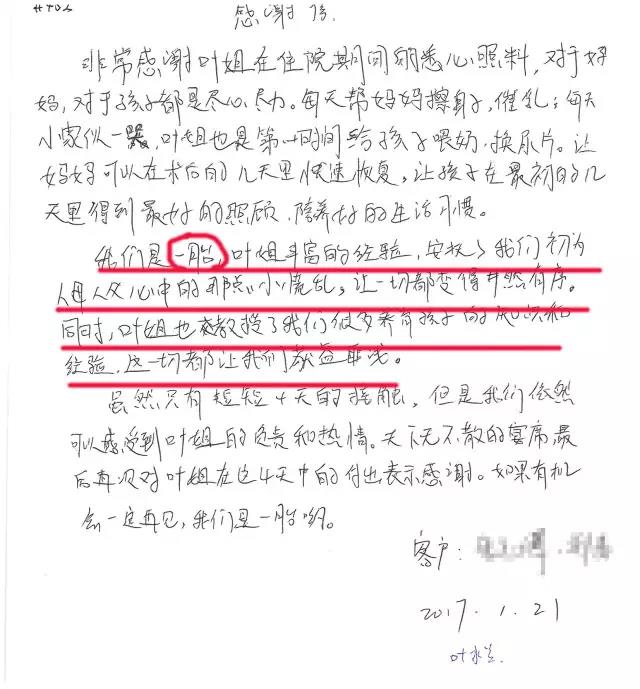 感谢信
非常感谢叶姐在住院期间细悉心照料,对于妈
妈,对于孩子都是尽心尽力。每天帮妈妈擦身子,催乳;每天
小家伙一哭,叶姐也是第一时间给孩子喂奶、换尿片。让
妈妈可以在术后的几天里快速恢复,让孩子在最初的几
天里得到最好的照顾、培养好的生活习惯。
我们是一胎,叶姐丰富的经验,安抚了我们初为
人母人父心中的那点小小慌乱,让一切都变得井然有序。
同时,叶姐也教授了我们很多养育孩子的知识和
经验,这一切都让我们获益匪浅。
虽然只有短短4天的接触,但是我们依然
可以感受到叶姐的负责和热情。天下无不散的宴席,最
后再次对叶姐在这4天中的付出表示感谢。如果有机
会一定再见,我们是一胎哟。
客户:
2017.1.21
叶水兰.